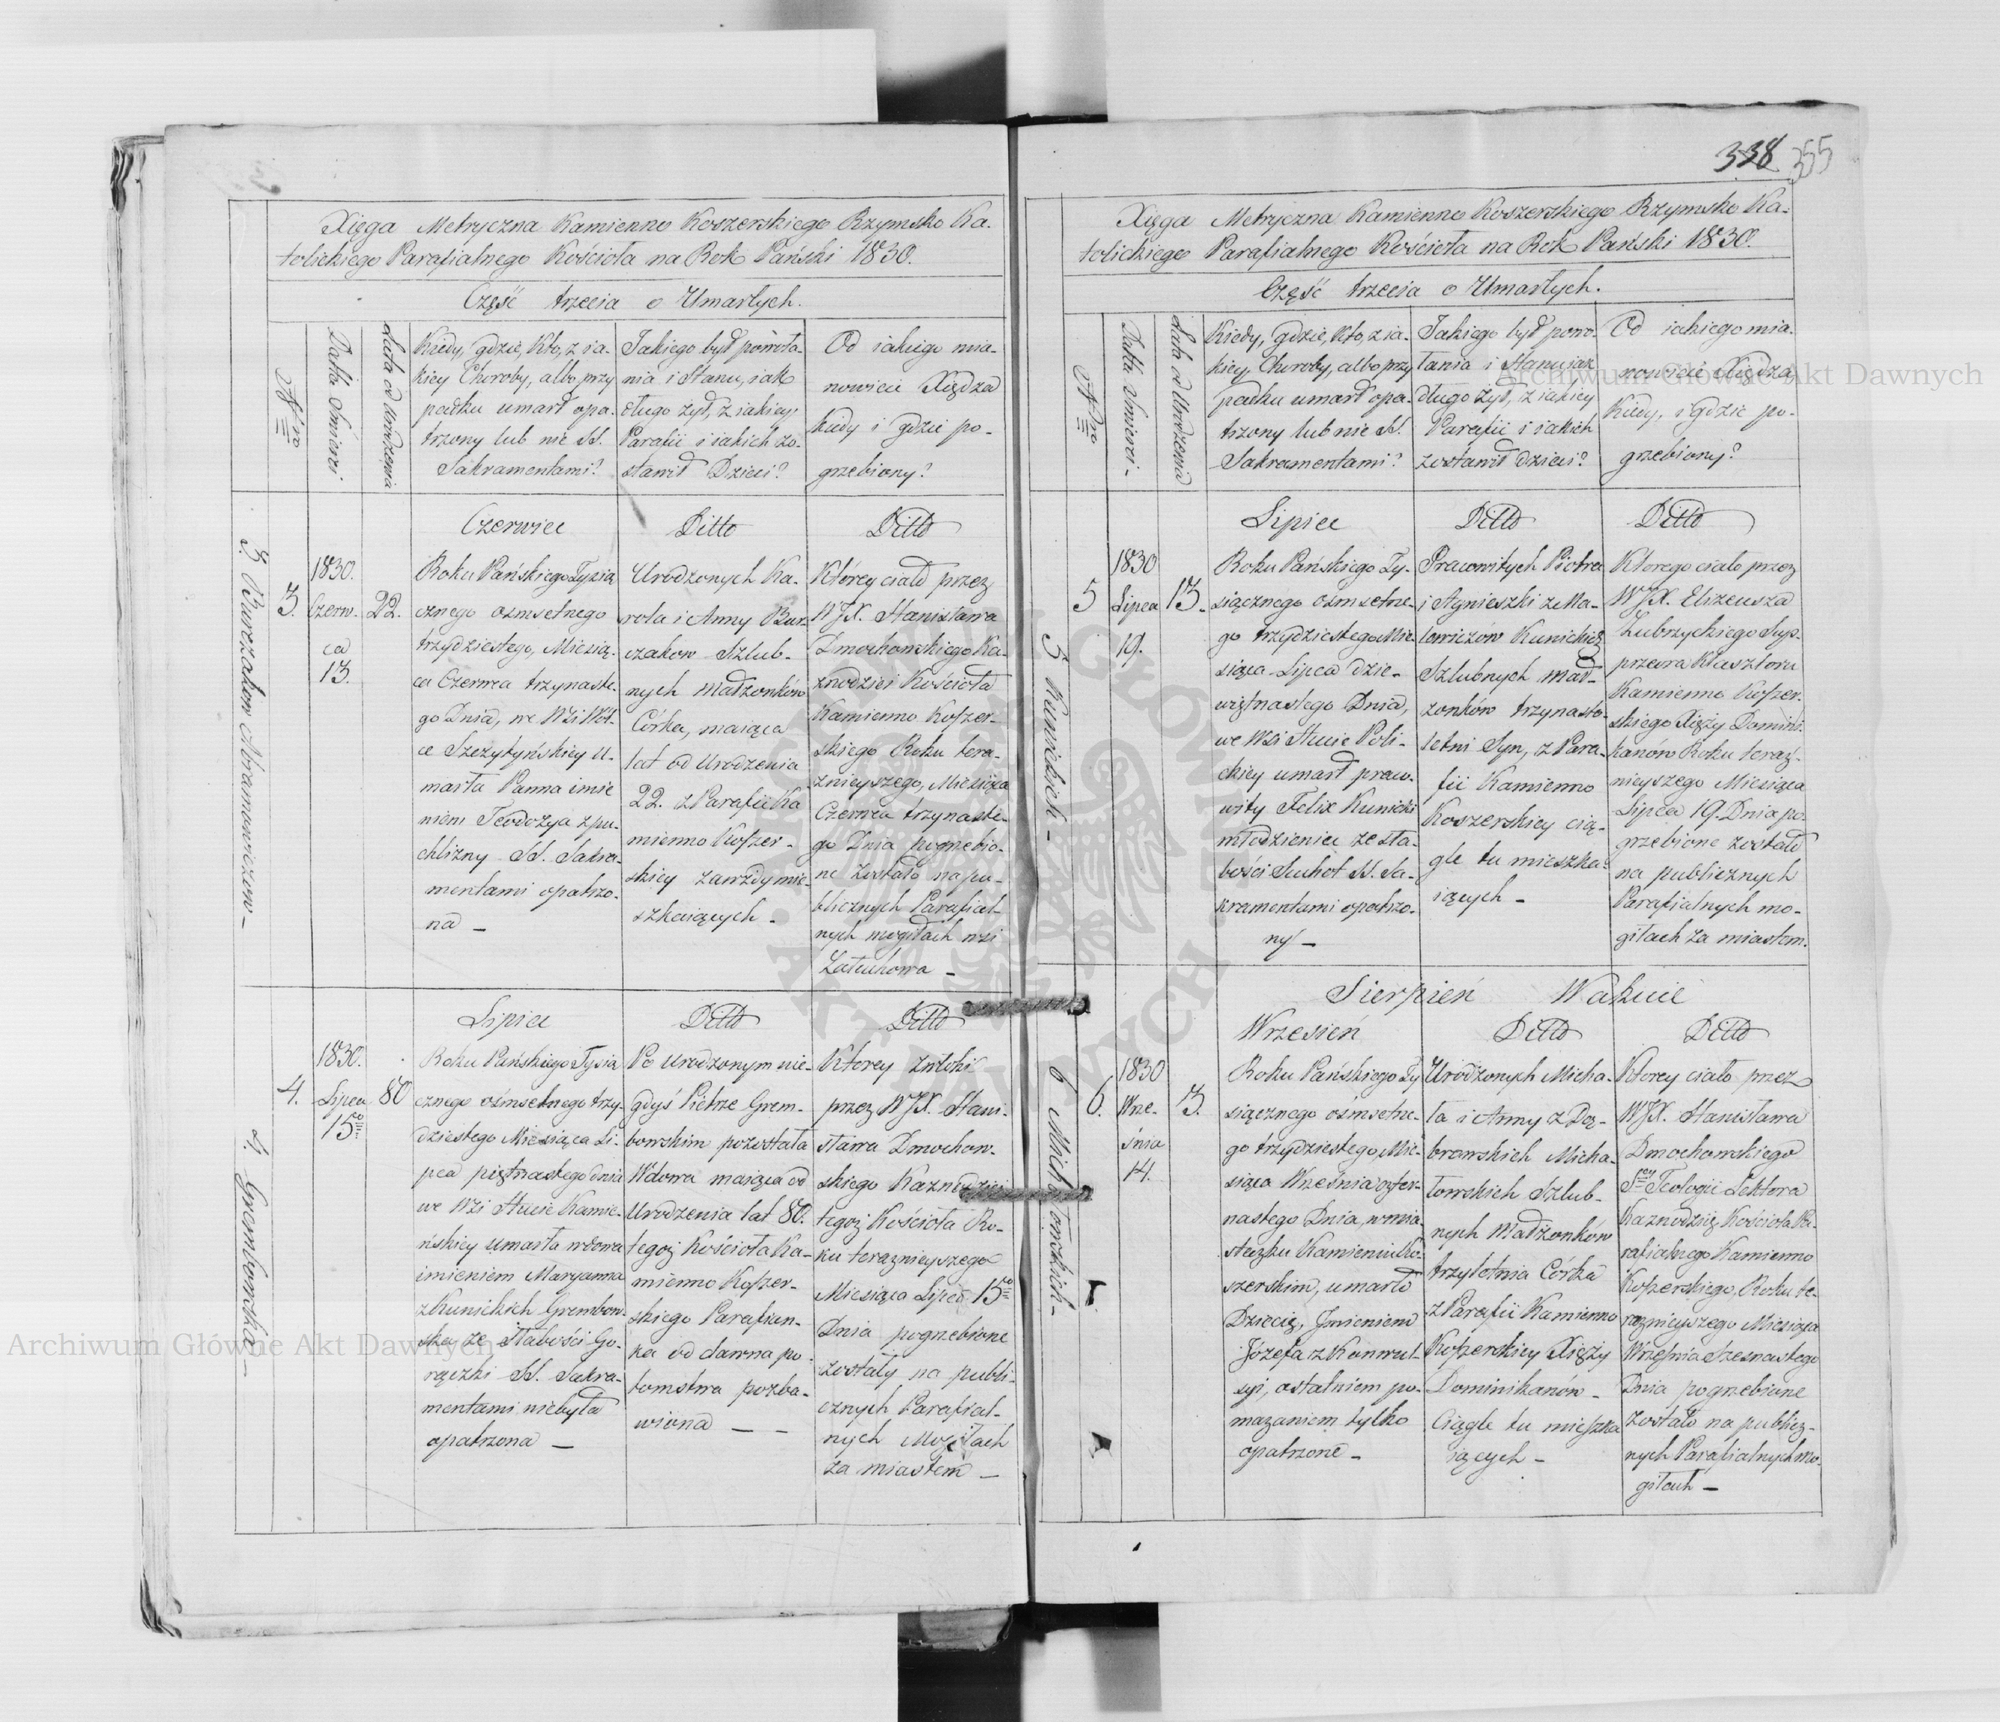 338 355
Xięga Metryczna Kamienno Koszerskiego Rzymsko Ka-
tolickiego Parafialnego Kościoła na Rok Pański 1830.
Część trzecia o Umarłych.
Nro
Datta Śmierci
Lata od Urodzenia
Kiedy, gdzie, Kto, z ia-
kiey Choroby, albo przy
padku umarł opa-
trzony lub nie SS.
Sakramentami?
Jakiego był powoła-
nia i Stanu, iak
długo żył, z iakiey
Parafii i iakich zo-
stawił Dzieci?
Od iakiego mia-
nowicie Xiędza
kiedy i gdzie po-
grzebiony?
3. Burzakow Abramowiczow –
3.
1830.
Czerw-
ca
13.
22.
Czerwiec
Roku Pańskiego Tysią
cznego osmsetnego
trzydziestego, Miesią-
ca Czerwca trzynaste-
go Dnia, we Wsi Wol-
ce Szczytyńskiey u-
marła Panna imie
niem Teodozya z pu-
chlizny SS. Sakra-
mentami opatrzo-
na –
Ditto
Urodzonych Ka-
rola i Anny Bur-
zakow Szlub-
nych Małżonków
Córka, maiąca
lat od Urodzenia
22. z Parafii Ka
mienno Koszer-
skiey zawżdy mie-
szkaiących –
Ditto
Którey ciało przez
WJX. Stanisława
Dmochowskiego Ka-
znodziei Kościoła
Kamienno Koszer-
skiego Roku tera-
źnieyszego, Miesiąca
Czerwca trzynaste-
go Dnia pogrzebio-
ne zostało na pu-
blicznych Parafial-
nych mogiłach wsi
Zatuchowa –
4. Grembowska –
4.
1830.
Lipca
15º
80
Lipiec
Roku Pańskiego Tysią
cznego ośmsetnego trzy-
dziestego Miesiąca Li-
pca piętnastego dnia
we Wsi Hucie Kamie-
ńskiey umarła wdowa
imieniem Maryanna
z Kunickich Grembow-
ska, ze słabości Go-
rączki SS. Sakra-
mentami niebyła
opatrzona –
Ditto
Po urodzonym nie-
gdyś Pietrze Grem-
bowskim pozostała
Wdowa maiąca od
Urodzenia lat 80.
tegoż Kościoła Ka-
mienno Koszer-
skiego Parafian-
ka od dawna po
tomstwa pozba-
wiona – –
Ditto
Ktorey zwłoki
przez WJX. Stani-
sława Dmochow-
skiego Kaznodziei
tegoż Kościoła Ro-
ku teraznieyszego
Miesiąca Lipca 15º
Dnia pogrzebione
zostały na publi-
cznych Parafial-
nych Mogiłach
za miastem –
Xięga Metryczna Kamienno Koszerskiego Rzymsko Ka-
tolickiego Parafialnego Kościoła na Rok Pański 1830.
Część trzecia o Umarłych.
Nro
Datta Śmierci
Lata od Urodzenia
Kiedy, gdzie, kto, z ia-
kiey Choroby, albo przy
padku umarł opa-
trzony lub nie SS.
Sakramentami?
Jakiego był powo-
łania i Stanu iak
długo żył, z iakiey
Parafii i iakich
zostawił dzieci?
Od iakiego mia-
nowicie Xiędza
Kiedy, i gdzie po-
grzebiony?
5 Kunickich –
5
1830
Lipca
19.
13.
Lipiec
Roku Pańskiego Ty-
siącznego ośmsetne-
go trzydziestego Mie
siąca Lipca dzie-
więtnastego Dnia,
we Wsi Hucie Poli-
ckiey umarł praco-
wity Felix Kunicki
młodzieniec ze sła-
bości Suchot SS. Sa-
kramentami opatrzo-
ny –
Ditto
Pracowitych Piotra
i Agnieszki z Ma-
tewiczów Kunickich
Szlubnych Mał-
żonków trzynasto-
letni Syn, z Para-
fii Kamienno
Koszerskiey cią-
gle tu mieszka-
iących –
Ditto
Ktorego ciało przez
WJX. Elizeusza
Zubrzyckiego Sup-
przeora Klasztoru
Kamienno Koszer-
skiego Xięży Domini-
kanów Roku teraź-
nieyszego Miesiąca
Lipca 19. Dnia po-
grzebione zostało
na publicznych
Parafialnych mo-
giłach za miastem.
Sierpień Wakuie
6 Michałowskich –
6.
1830
Wrze-
śnia
14.
3.
Wrzesień
Roku Pańskiego Ty
siącznego ośmsetne-
go trzydziestego, Mie-
siąca Wrześnią czter-
nastego Dnia, w mia-
steczku Kamieniu Ko-
szerskim, umarło
Dziecię, Jmieniem
Józefa z Konwul-
syi, ostatniem po-
mazaniem tylko
opatrzone –
Ditto
Urodzonych Micha-
ła i Anny z Dą-
browskich Micha-
łowskich Szlub-
nych Małżonków
trzyletnia Córka
z Parafii Kamienno
Koszerskiey Xięży
Dominikanów –
Ciągle tu mieszka
iących –
Ditto
Ktorey ciało przez
WJX. Stanisława
Dmochowskiego
Stey Teologii Lektora
Kaznodzieię Kościoła Pa-
rafialnego Kamienno
Koszerskiego, Roku te-
raznieyszego Miesiąca
Września Szesnastego
Dnia pogrzebione
zostało na publicz-
nych Parafialnych mo-
giłach –
Archiwum Główne Akt Dawnych
Archiwum Główne Akt Dawnych